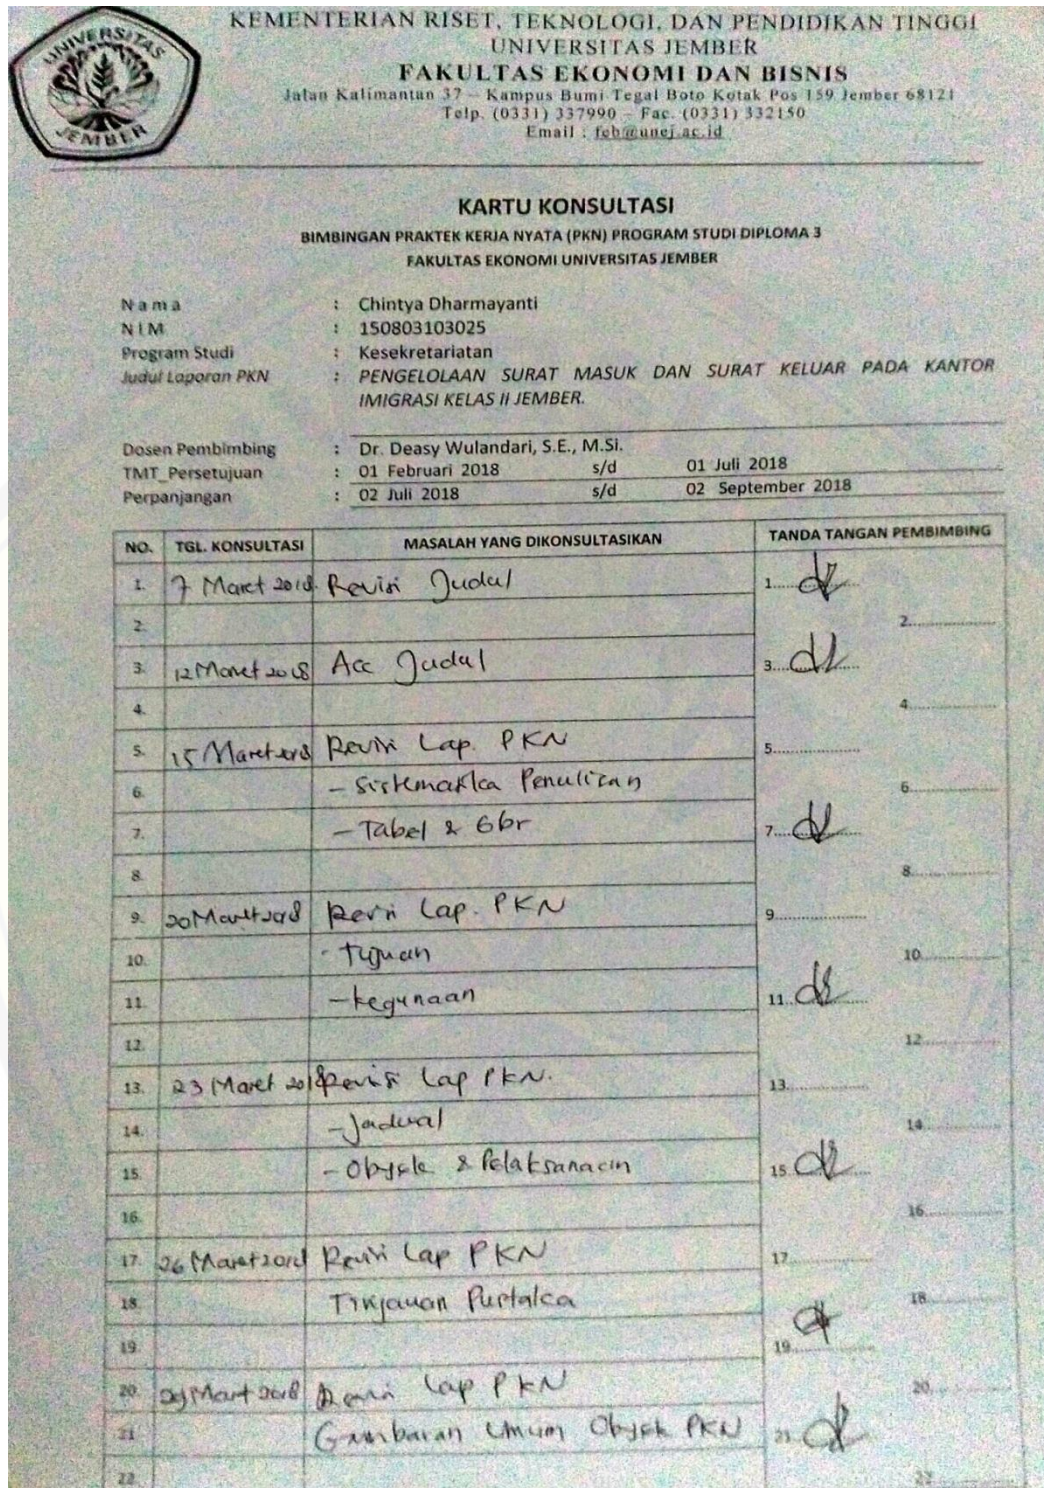 UNIVERSITAS
JEMBER
KEMENTERIAN RISET, TEKNOLOGI, DAN PENDIDIKAN TINGGI
UNIVERSITAS JEMBER
FAKULTAS EKONOMI DAN BISNIS
Jalan Kalimantan 37 – Kampus Bumi Tegal Boto Kotak Pos 159 Jember 68121
Telp. (0331) 337990 – Fac. (0331) 332150
Email : feb@unej.ac.id
KARTU KONSULTASI
BIMBINGAN PRAKTEK KERJA NYATA (PKN) PROGRAM STUDI DIPLOMA 3
FAKULTAS EKONOMI UNIVERSITAS JEMBER
Nama : Chintya Dharmayanti
NIM : 150803103025
Program Studi : Kesekretariatan
Judul Laporan PKN : PENGELOLAAN SURAT MASUK DAN SURAT KELUAR PADA KANTOR
IMIGRASI KELAS II JEMBER.
Dosen Pembimbing : Dr. Deasy Wulandari, S.E., M.Si.
TMT_Persetujuan : 01 Februari 2018 s/d 01 Juli 2018
Perpanjangan : 02 Juli 2018 s/d 02 September 2018
NO. TGL. KONSULTASI MASALAH YANG DIKONSULTASIKAN TANDA TANGAN PEMBIMBING
1. 7 Maret 2018 Revisi Judul 1.......
2. 2.......
3. 12 Maret 2018 Acc Judul 3.......
4. 4.......
5. 15 Maret 2018 Revisi Lap. PKN 5.......
6. - Sistematika Penulisan 6.......
7. - Tabel & Gbr 7.......
8. 8.......
9. 20 Maret 2018 Revisi Lap. PKN 9.......
10. - Tujuan 10.......
11. - kegunaan 11.......
12. 12.......
13. 23 Maret 2018 Revisi Lap PKN. 13.......
14. - Jadwal 14.......
15. - Obyek & Pelaksanaan 15.......
16. 16.......
17. 26 Maret 2018 Revisi Lap PKN 17.......
18. Tinjauan Pustaka 18.......
19. 19.......
20. 29 Maret 2018 Revisi Lap PKN 20.......
21. Gambaran Umum Obyek PKN 21.......
22. 22.......